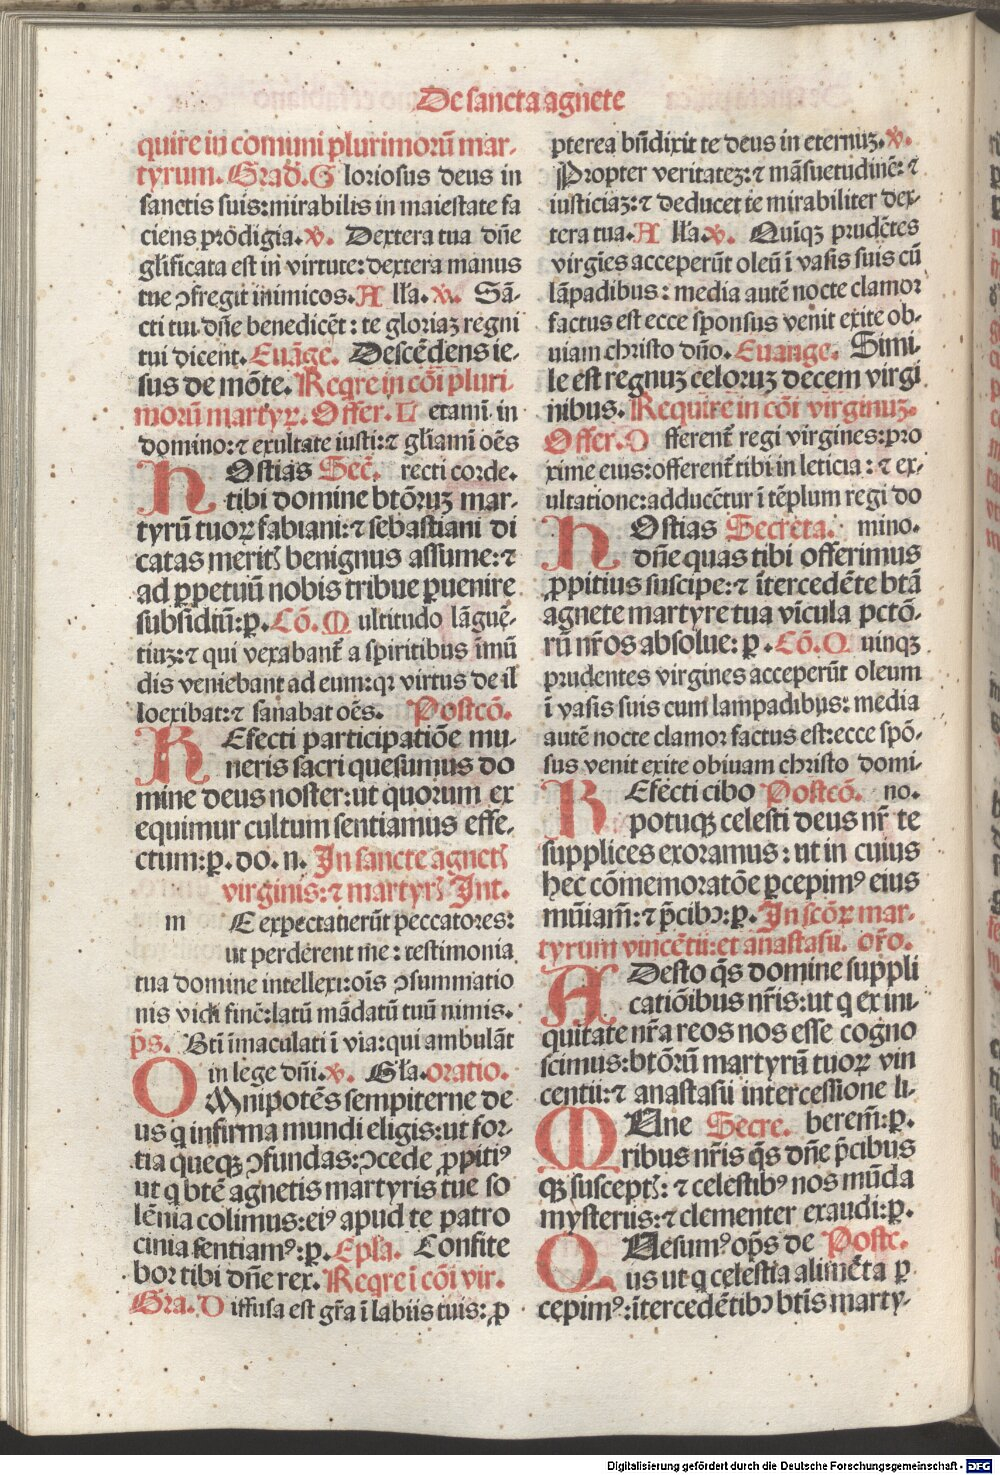 De sancta agnete
quire in comuni plurimorū mar-
tyrum. Grad̄. G loriosus deus in
sanctis suis: mirabilis in maiestate fa
ciens prodigia. ꝟ. Dextera tua dn̄e
gl̓ificata est in virtute: dextera manus
tue ↄfregit inimicos. A ll̓a. ꝟ. Sā-
cti tui dn̄e benedicēt: te gloriaꝫ regni
tui dicent. Euāge. Descēdens ie-
sus de mōte. Reqre in cōi pluri-
morū martyꝝ. Offer. L etami in
domino: ⁊ exultate iusti: ⁊ gl̓iamī oēs
HOstias Secr̄. recti corde.
tibi domine btōꝝuꝫ mar-
tyrū tuoꝝ fabiani: ⁊ sebastiani di
catas merit̓ benignus assume: ⁊
ad ꝑpetuū nobis tribue ꝓuenire
subsidiū: ꝑ. Cō. M ultitudo lāguē-
tiuꝫ: ⁊ qui vexabant̄ a spiritibus īmū
dis veniebant ad eum: qꝛ virtus de il
lo exibat: ⁊ sanabat oēs. Postcō.
REfecti participatiōe mu-
neris sacri quesumus do
mine deus noster: ut quorum ex
equimur cultum sentiamus effe-
ctum: ꝑ. do. n. In sancte agnet̓
virginis: ⁊ martyr̓. Int.
m E expectauerūt peccatores:
ut perderent me: testimonia
tua domine intellexi: oīs ↄsummatio
nis vidi finē: latū mādatū tuū nimis.
p̄s. Btī īmaculati ī via: qui ambulāt
in lege dn̄i. ꝟ. Gl̓a. oratio.
OMnipotēs sempiterne de
us q infirma mundi eligis: ut for-
tia queqꝫ ↄfundas: ↄcede ꝓpitiꝰ
ut q btē agnetis martyris tue so
lēnia colimus: eiꝰ apud te patro
cinia sentiamꝰ: ꝑ. Epl̓a. Confite
bor tibi dn̄e rex. Reqre ī cōi vir.
Gra. D iffusa est gr̄a ī labiis tuis: ꝓ
pterea bn̄dixit te deus in eternuꝫ. ꝟ.
Propter veritateꝫ: ⁊ māsuetudinē: ⁊
iusticiaꝫ: ⁊ deducet te mirabiliter dex-
tera tua. A ll̓a. ꝟ. Quīqꝫ prudētes
virgīes acceperūt oleū ī vasis suis cū
lāpadibus: media autē nocte clamor
factus est ecce sponsus venit exite ob-
uiam christo dn̄o. Euange. Simi-
le est regnuꝫ celoruꝫ decem virgi
nibus. Require in cōi virginuꝫ.
Offer. O fferent̄ regi virgines: pro
xime eius: offerent̄ tibi in leticia: ⁊ ex-
ultatione: adducētur ī tēplum regi do
HOstias Secreta. mino.
dn̄e quas tibi offerimus
ꝓpitius suscipe: ⁊ ītercedēte btā
agnete martyre tua vīcula pctō-
rū nr̄os absolue: ꝑ. Cō. Q uinqꝫ
prudentes virgines acceperūt oleum
ī vasis suis cum lampadibus: media
autē nocte clamor factus est: ecce spō-
sus venit exite obiuam christo domi-
REfecti cibo Postcō. no.
potuqꝫ celesti deus nr̄ te
supplices exoramus: ut in cuius
hęc cōmemoratōe ꝑcepimꝰ eius
muniam̄: ⁊ p̄cibꝰ: ꝑ. In scōꝝ mar-
tyrum vincētii: et anastasii. or̄o.
ADesto q̄s domine suppli
catiōibus nr̄is: ut q ex ini-
quitate nr̄a reos nos esse cogno
scimus: btōrū martyrū tuoꝝ vin
centii: ⁊ anastasii intercessione li-
MUne Secre. berem̄: ꝑ.
ribus nr̄is q̄s dn̄e p̄cibus
qꝫ suscept̓: ⁊ celestibꝰ nos mūda
mysteriis: ⁊ clementer exaudi: ꝑ.
QUesumꝰ op̄s de Postc.
us ut q celestia alimēta ꝑ
cepimꝰ: ītercedētibꝰ btīs marty-
Digitalisierung gefördert durch die Deutsche Forschungsgemeinschaft - DFG